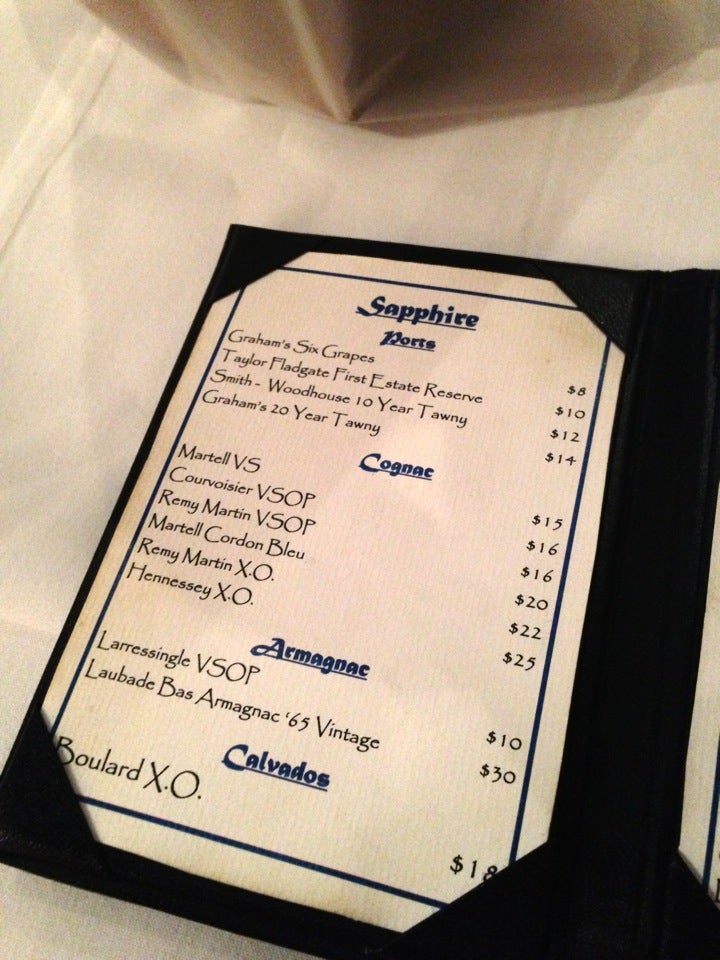 Sapphire
Ports
Graham's Six Grapes $8
Taylor Fladgate First Estate Reserve $10
Smith - Woodhouse 10 Year Tawny $12
Graham's 20 Year Tawny $14
Cognac
Martell VS $15
Courvoisier VSOP $16
Remy Martin VSOP $16
Martell Cordon Bleu $20
Remy Martin X.O. $22
Hennessey X.O. $25
Armagnac
Larressingle VSOP $10
Laubade Bas Armagnac '65 Vintage $30
Calvados
Boulard X.O. $18